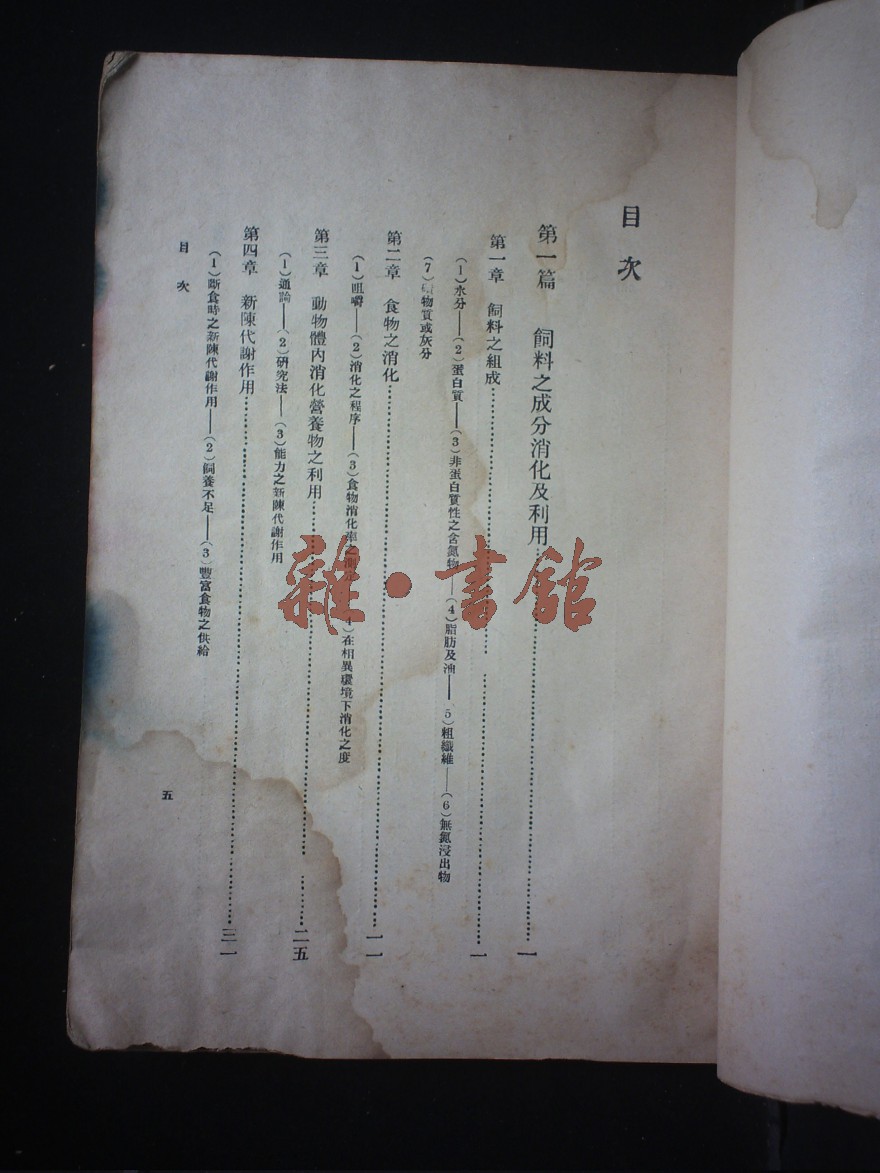 目次
第一篇 飼料之成分消化及利用……一
第一章 飼料之組成……一
(1)水分——(2)蛋白質——(3)非蛋白質性之含氮物——(4)脂肪及油——5)粗纖維——(6)無氮浸出物
(7)物質或灰分
第二章 食物之消化……一一
(1)咀嚼——(2)消化之程序——(3)食物消化率之 4)在相異環境下消化之度
第三章 動物體內消化營養物之利用……二五
(1)通論——(2)研究法——(3)能力之新陳代謝作用
第四章 新陳代謝作用……三一
(1)斷食時之新陳代謝作用——(2)飼養不足——(3)豐富食物之供給
目次
五
雜·書館